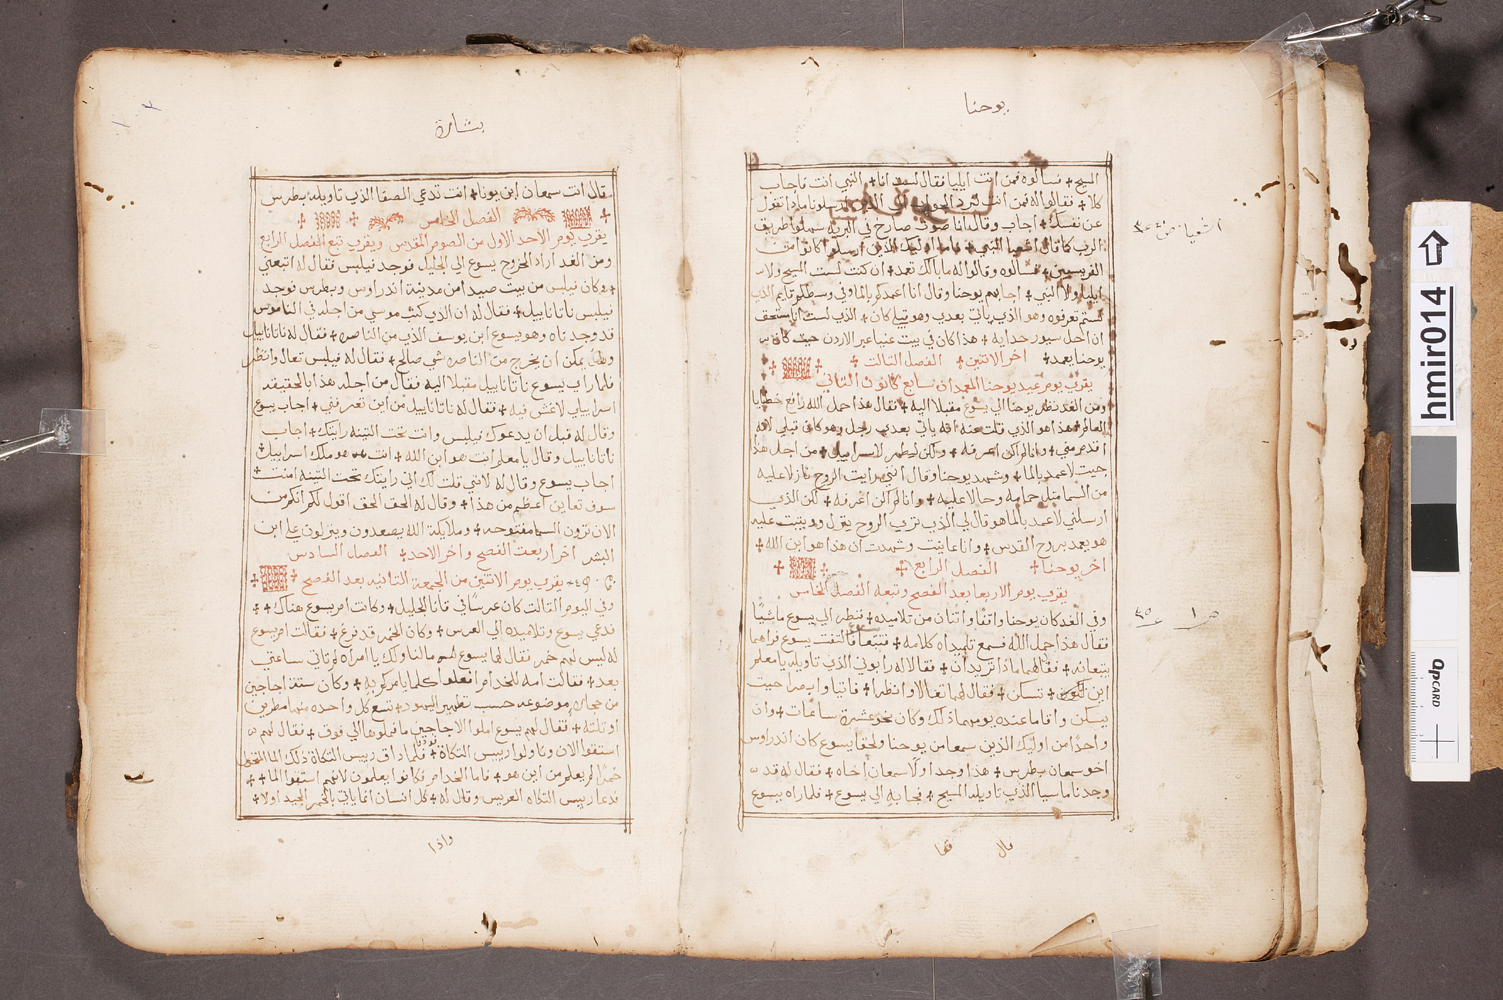 يوحنا
المسيح + فسالوه فمن انت ايليا فقال لست انا + النبي انت فاجاب
كلا + فقالوا له فمن انت لنرد الجواب الي الذين ارسلونا ماذا تقول
عن نفسك + اجاب وقال انا صوت صارخ في البريه سهلوا طريق
الرب كما قال اشعيا النبي + فاما اوليك الذين ارسلوا كانوا من
الفريسيين + فسالوه وقالوا له ما بالك تعمد + ان كنت لست المسيح ولا
ايليا ولا النبي + اجابهم يوحنا وقال انا اعمدكم بالما وفي وسطكم قايم الذي
لستم تعرفوه وهو الذي ياتي بعدي وهو قبلي كان + الذي لست انا مستحق
ان احل سيور حدايه + هذا كان في بيت عنيا عبر الاردن حيث كان
يوحنا يعمد + اخر الاثنين + الفصل الثالث +
يقرى يوم عيد يوحنا المعمدان سابع كانون الثاني
ومن الغد نظر يوحنا الي يسوع مقبلا اليه + فقال هذا حمل الله رافع خطايا
العالم + هذا هو الذي قلت عنه انه ياتي بعدي رجل وهو كان قبلي لانه
اقدم مني + وانا لم اكن اعرفه + ولكن ليظهر لاسراييل + من اجل هذا
جيت لاعمد بالما + وشهد يوحنا وقال انني رايت الروح نازلا عليه
من السما مثل حمامه وحالا عليه + وانا لم اكن اعرفه + لكن الذي
ارسلني لاعمد بالما هو قال لي الذي تري الروح ينزل ويثبت عليه
هو يعمد بروح القدس + وانا عاينت وشهدت ان هذا هو ابن الله +
اخر يوحنا + الفصل الرابع +
يقرى يوم الاربعا بعد الفصح وتبعه الفصل الخامس
وفي الغد كان يوحنا واقفا واثنان من تلاميذه + فنظر الي يسوع ماشيا
فقال هذا حمل الله فسمع تلميذاه كلامه + فتبعا يسوع فالتفت يسوع فراهما
يتبعانه + فقال لهما ماذا تريدان + فقالا له رابوني الذي تاويله يا معلم
اين تسكن + فقال لهما تعالا وانظرا + فاتيا وابصرا حيث
يسكن واقاما عنده يومهما ذلك وكان نحو عشرة ساعات + وان
واحدا من اوليك الذين سمعا من يوحنا ولحقا يسوع كان اندراوس
اخو سمعان بطرس + هذا وجد اولا سمعان اخاه + فقال له قد
وجدنا ماسيا الذي تاويله المسيح + فجا به الي يسوع + فلما راه يسوع
قال
بشارة
قال انت سمعان ابن يونا + انت تدعي الصفا الذي تاويله بطرس
+ الفصل الخامس +
يقرى يوم الاحد الاول من الصوم المقدس ويقرى تبع الفصل الرابع
ومن الغد اراد الخروج يسوع الي الجليل فوجد فيلبس فقال له اتبعني
+ وكان فيلبس من بيت صيدا من مدينة اندراوس وبطرس فوجد
فيلبس ناتاناييل + فقال له ان الذي كتب موسي من اجله في الناموس
قد وجدناه وهو يسوع ابن يوسف الذي من الناصره + فقال له ناتاناييل
وهل يمكن ان يخرج من الناصره شي صالح + فقال له فيلبس تعال وانظر
فلما راي يسوع ناتاناييل مقبلا اليه فقال من اجله هذا بالحقيقه
اسراييلي لا غش فيه + فقال له ناتاناييل من اين تعرفني + اجاب يسوع
وقال له قبل ان يدعوك فيلبس وانت تحت التينه رايتك + اجاب
ناتاناييل وقال يا معلم انت هو ابن الله + انت هو ملك اسراييل +
اجاب يسوع وقال له لانني قلت لك اني رايتك تحت التينه امنت +
سوف تعاين اعظم من هذا + وقال له الحق الحق اقول لكم انكم من
الان ترون السما مفتوحه + وملايكة الله يصعدون وينزلون علي ابن
البشر اخر اربعت الفصح واخر الاحد + الفصل السادس
يقرى يوم الاثنين من الجمعة الثانيه بعد الفصح +
وفي اليوم الثالث كان عرسا في قانا الجليل + وكانت ام يسوع هناك +
فدعي يسوع وتلاميذه الي العرس + وكان الخمر قد فرغ + فقالت ام يسوع
له ليس لهم خمر فقال لها يسوع ما لنا ولك يا امراه لم تاتي ساعتي
بعد + فقالت امه للخدام افعلوا كلما يامركم به + وكان ستة اجاجين
من حجاره موضوعه حسب تطهير اليهود + تسع كل واحده منها مطرين
او ثلثه + فقال لهم يسوع املوا الاجاجين ما فملوها الي فوق + فقال لهم
استقوا الان وناولوا رييس التكاة + فلما داق رييس التكاة ذلك الما المتحول
خمرا لم يعلم من اين هو + فاما الخدام فكانوا يعلمون لانهم استقوا الما +
فدعا رييس التكاه العريس وقال له + كل انسان انما ياتي بالخمر الجيد اولا +
واذا